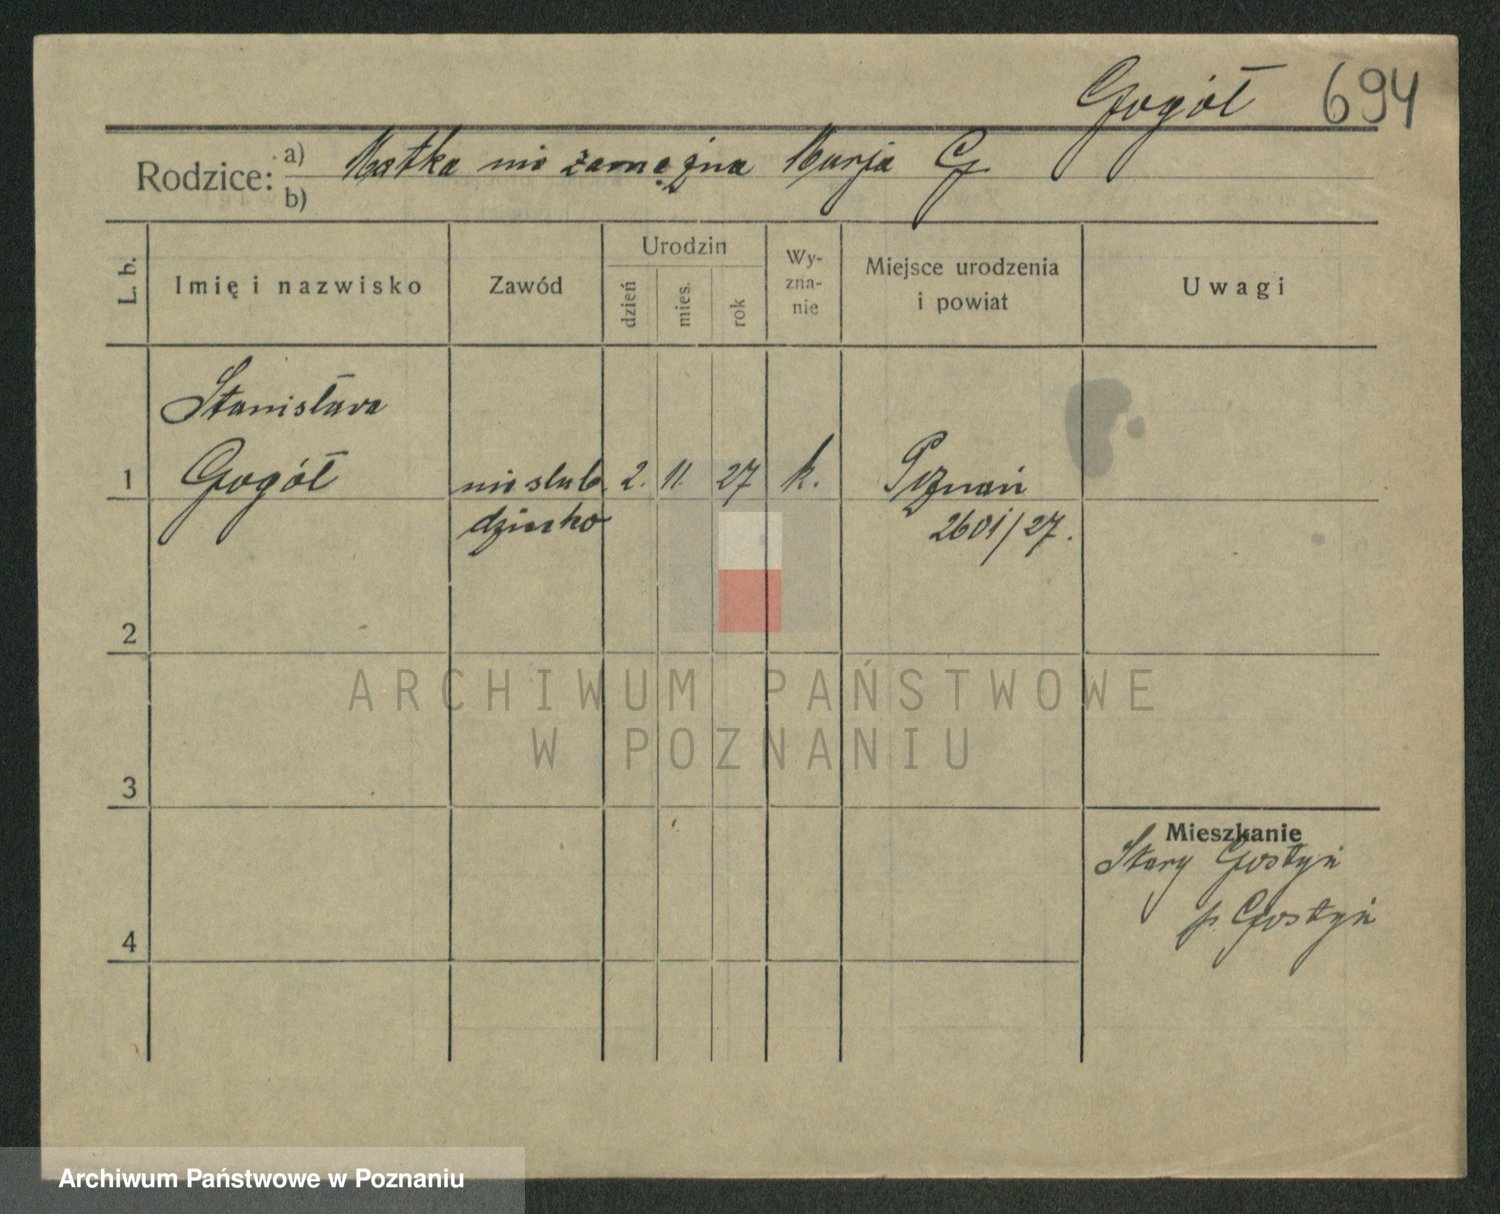 Gogół 694
Rodzice: a) Matka nie zamężna Marja G.
b)
L. b.
Imię i nazwisko
Zawód
Urodzin
dzień
mies.
rok
Wy-
zna-
nie
Miejsce urodzenia
i powiat
Uwagi
Stanisława
1 Gogół nieślub. 2. 11. 27 k. Poznań
dziecko 2601/27.
2
3
4
Mieszkanie
Stary Gostyń
p. Gostyń
ARCHIWUM PAŃSTWOWE
W POZNANIU
Archiwum Państwowe w Poznaniu